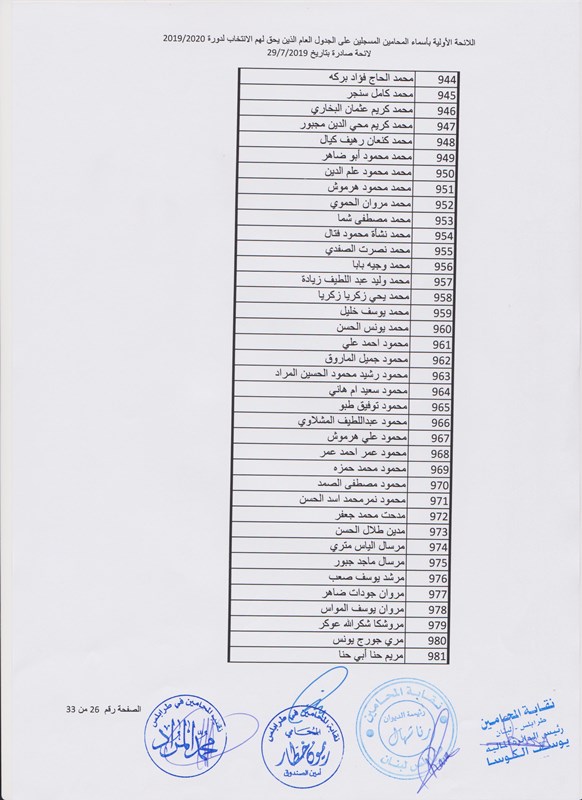 اللائحة الأولية بأسماء المحامين المسجلين على الجدول العام الذين يحق لهم الانتخاب لدورة 2019/2020
لائحة صادرة بتاريخ 29/7/2019
944 محمد الحاج فؤاد بركه
945 محمد كامل سنجر
946 محمد كريم عثمان البخاري
947 محمد كريم محي الدين مجبور
948 محمد كنعان رهيف كيال
949 محمد محمود أبو ضاهر
950 محمد محمود علم الدين
951 محمد محمود هرموش
952 محمد مروان الحموي
953 محمد مصطفى شما
954 محمد نشأة محمود فتال
955 محمد نصرت الصفدي
956 محمد وجيه بابا
957 محمد وليد عبد اللطيف زيادة
958 محمد يحي زكريا زكريا
959 محمد يوسف خليل
960 محمد يونس الحسن
961 محمود احمد علي
962 محمود جميل الماروق
963 محمود رشيد محمود الحسين المراد
964 محمود سعيد ام هاني
965 محمود توفيق طبو
966 محمود عبداللطيف المشلاوي
967 محمود علي هرموش
968 محمود عمر احمد عمر
969 محمود محمد حمزه
970 محمود مصطفى الصمد
971 محمود نمرمحمد اسد الحسن
972 مدحت محمد جعفر
973 مدين طلال الحسن
974 مرسال الياس متري
975 مرسال ماجد جبور
976 مرشد يوسف صعب
977 مروان جودات ضاهر
978 مروان يوسف المواس
979 مروشكا شكرالله عوكر
980 مري جورج يونس
981 مريم حنا أبي حنا
نقابة المحامين
طرابلس - لبنان
يوسف الكوسا
نقابة المحامين
رئيسة الديوان
رنا شهال
طرابلس لبنان
نقابة المحامين في طرابلس
المحامي
ريمون خطار
أمين الصندوق
نقيب المحامين في طرابلس
محمد المراد
الصفحة رقم 26 من 33